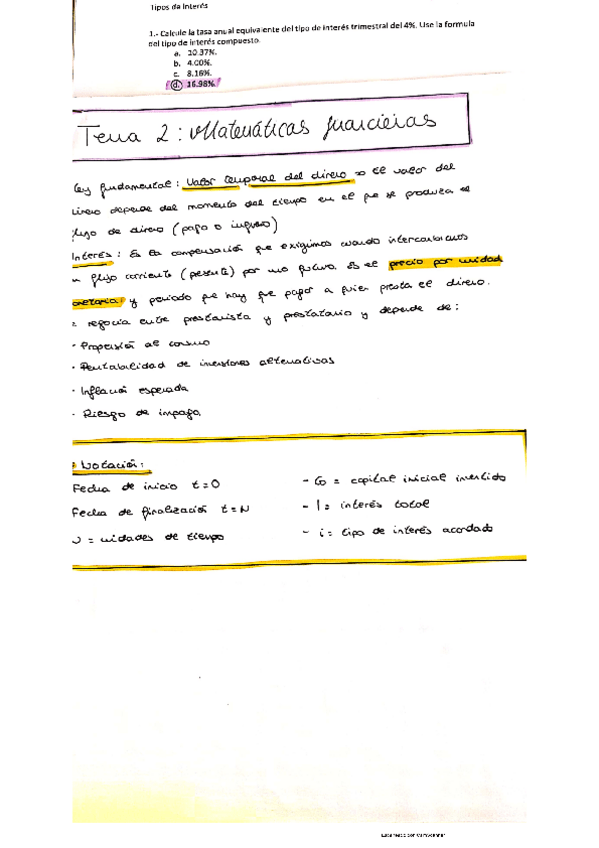 Tipos de Interés
1.- Calcule la tasa anual equivalente del tipo de interés trimestral del 4%. Use la formula
del tipo de interés compuesto.
a. 10.37%.
b. 4.00%.
c. 8.16%.
d. 16.98%.
Tema 2: Matemáticas financieras
Ley fundamental: Valor temporal del dinero => El valor del
dinero depende del momento del tiempo en el que se produzca el
flujo de dinero (pago o ingreso)
Interés: Es la compensación que exigimos cuando intercambiamos
un flujo corriente (presente) por uno futuro. Es el precio por unidad
monetaria y periodo que hay que pagar a quien presta el dinero.
se negocia entre prestamista y prestatario y depende de:
· Propensión al consumo
· Rentabilidad de inversiones alternativas
· Inflación esperada
· Riesgo de impago
· Notación:
Fecha de inicio t=0
Fecha de finalización t=N
N = unidades de tiempo
- C0 = capital inicial invertido
- I = interés total
- i = tipo de interés acordado